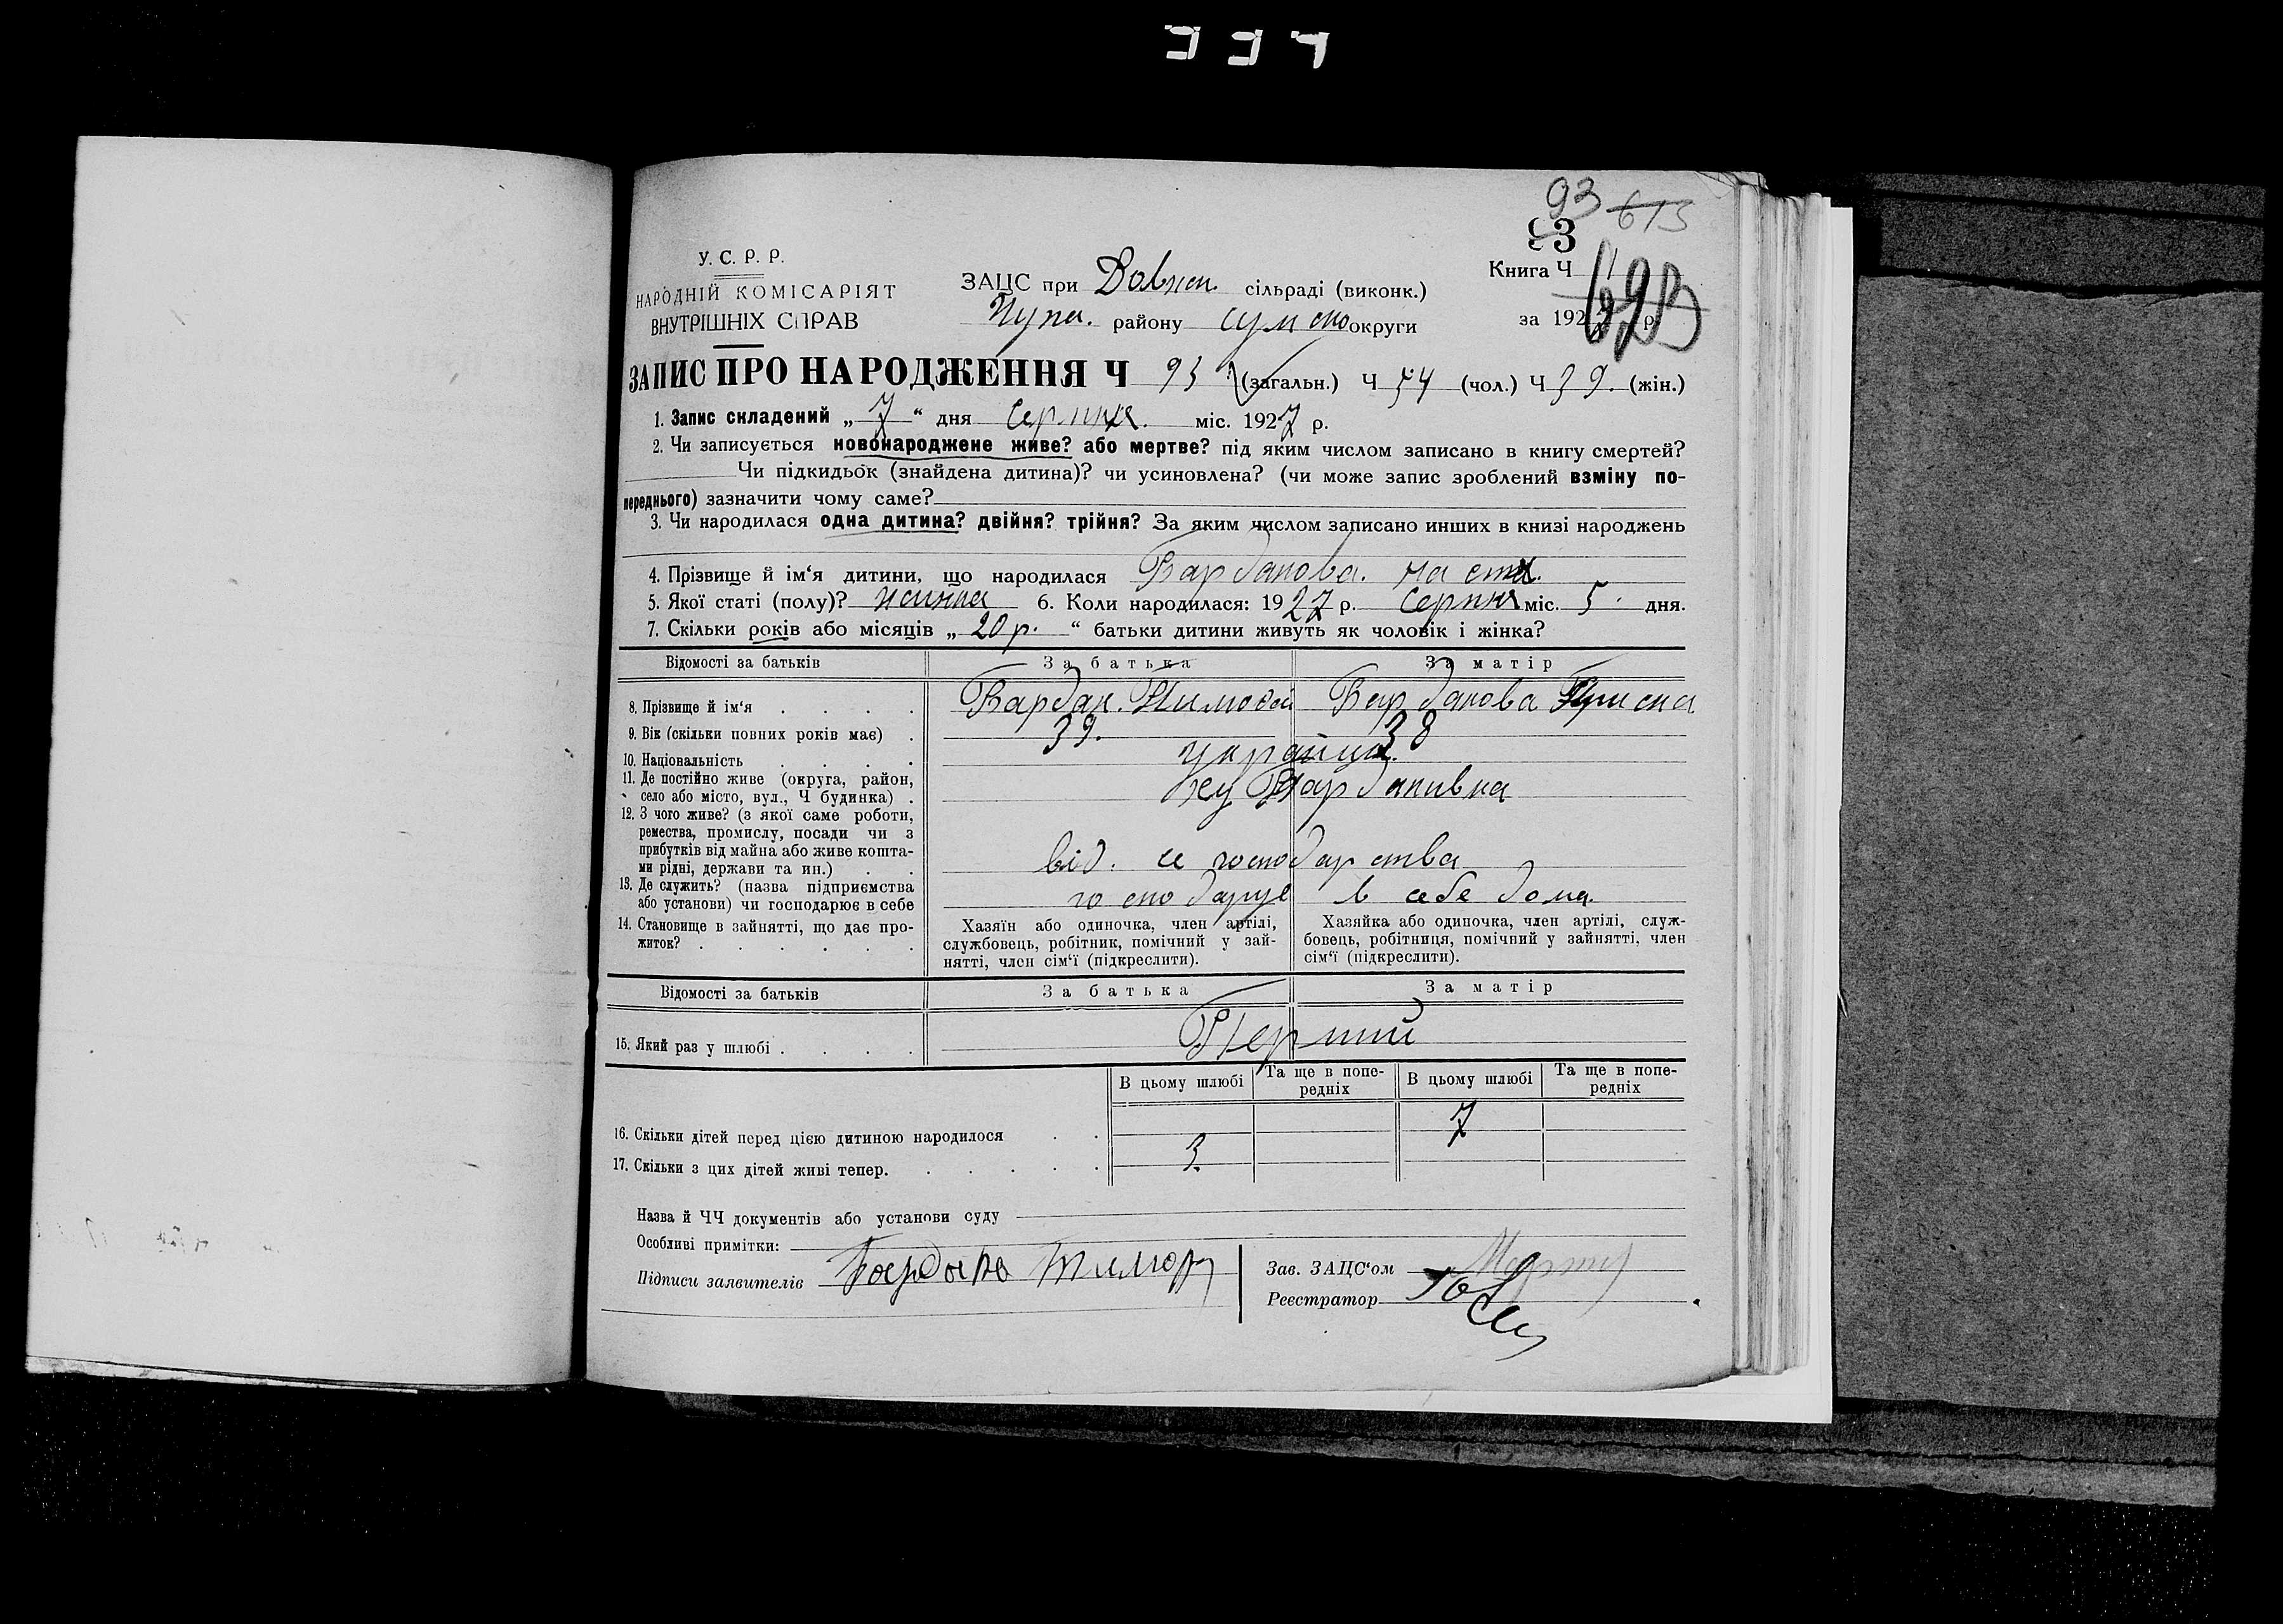 337
93 613
93
У. С. Р. Р.
НАРОДНІЙ КОМІСАРІЯТ
ВНУТРІШНІХ СПРАВ
ЗАЦС при Довжен. сільраді (виконк.)
района району Сумсько округи
Книга Ч
за 192 р.
ЗАПИС ПРО НАРОДЖЕННЯ Ч 93 (загальн.) Ч 54 (чол.) Ч 39. (жін.)
1. Запис складений „ 7 “ дня Серпня. міс. 1927 р.
2. Чи записується новонароджене живе? або мертве? під яким числом записано в книгу смертей?
Чи підкидьок (знайдена дитина)? чи усиновлена? (чи може запис зроблений взміну по-
переднього) зазначити чому саме?
3. Чи народилася одна дитина? двійня? трійня? За яким числом записано инших в книзі народжень
4. Прізвище й ім‘я дитини, що народилася Барданова. Настя.
5. Якої статі (полу)? жіночa 6. Коли народилася: 1927 р. Серпня міс. 5. дня.
7. Скільки років або місяців „ 20 р. “ батьки дитини живуть як чоловік і жінка?
Відомості за батьків За батька За матір
8. Прізвище й ім‘я . . . . Бардак. Тимофій Барданова
9. Вік (скільки повних років має) . 39. 38
10. Національність . . . . українці.
11. Де постійно живе (округа, район,
село або місто, вул., Ч будинка) . ху Барданивка
12. З чого живе? (з якої саме роботи,
ремества, промислу, посади чи з
прибутків від майна або живе кошта-
ми рідні, держави та ин.) . . від. с господарства
13. Де служить? (назва підприємства
або установи) чи господарює в себе господарує в себе дома.
14. Становище в зайнятті, що дає про-
житок? . . . . . .
Хазяїн або одиночка, член артілі,
службовець, робітник, помічний у зай-
нятті, член сім‘ї (підкреслити).
Хазяйка або одиночка, член артілі, служ-
бовець, робітниця, помічний у зайнятті, член
сім‘ї (підкреслити).
Відомості за батьків За батька За матір
15. Який раз у шлюбі . . . . Перший
В цьому шлюбі Та ще в попе-
редніх В цьому шлюбі Та ще в попе-
редніх
16. Скільки дітей перед цією дитиною народилося . . 7
17. Скільки з цих дітей живі тепер. . . . . . 3.
Назва й ЧЧ документів або установи суду
Особливі примітки:
Підписи заявителів
Зав. ЗАЦС‘ом
Реєстратор